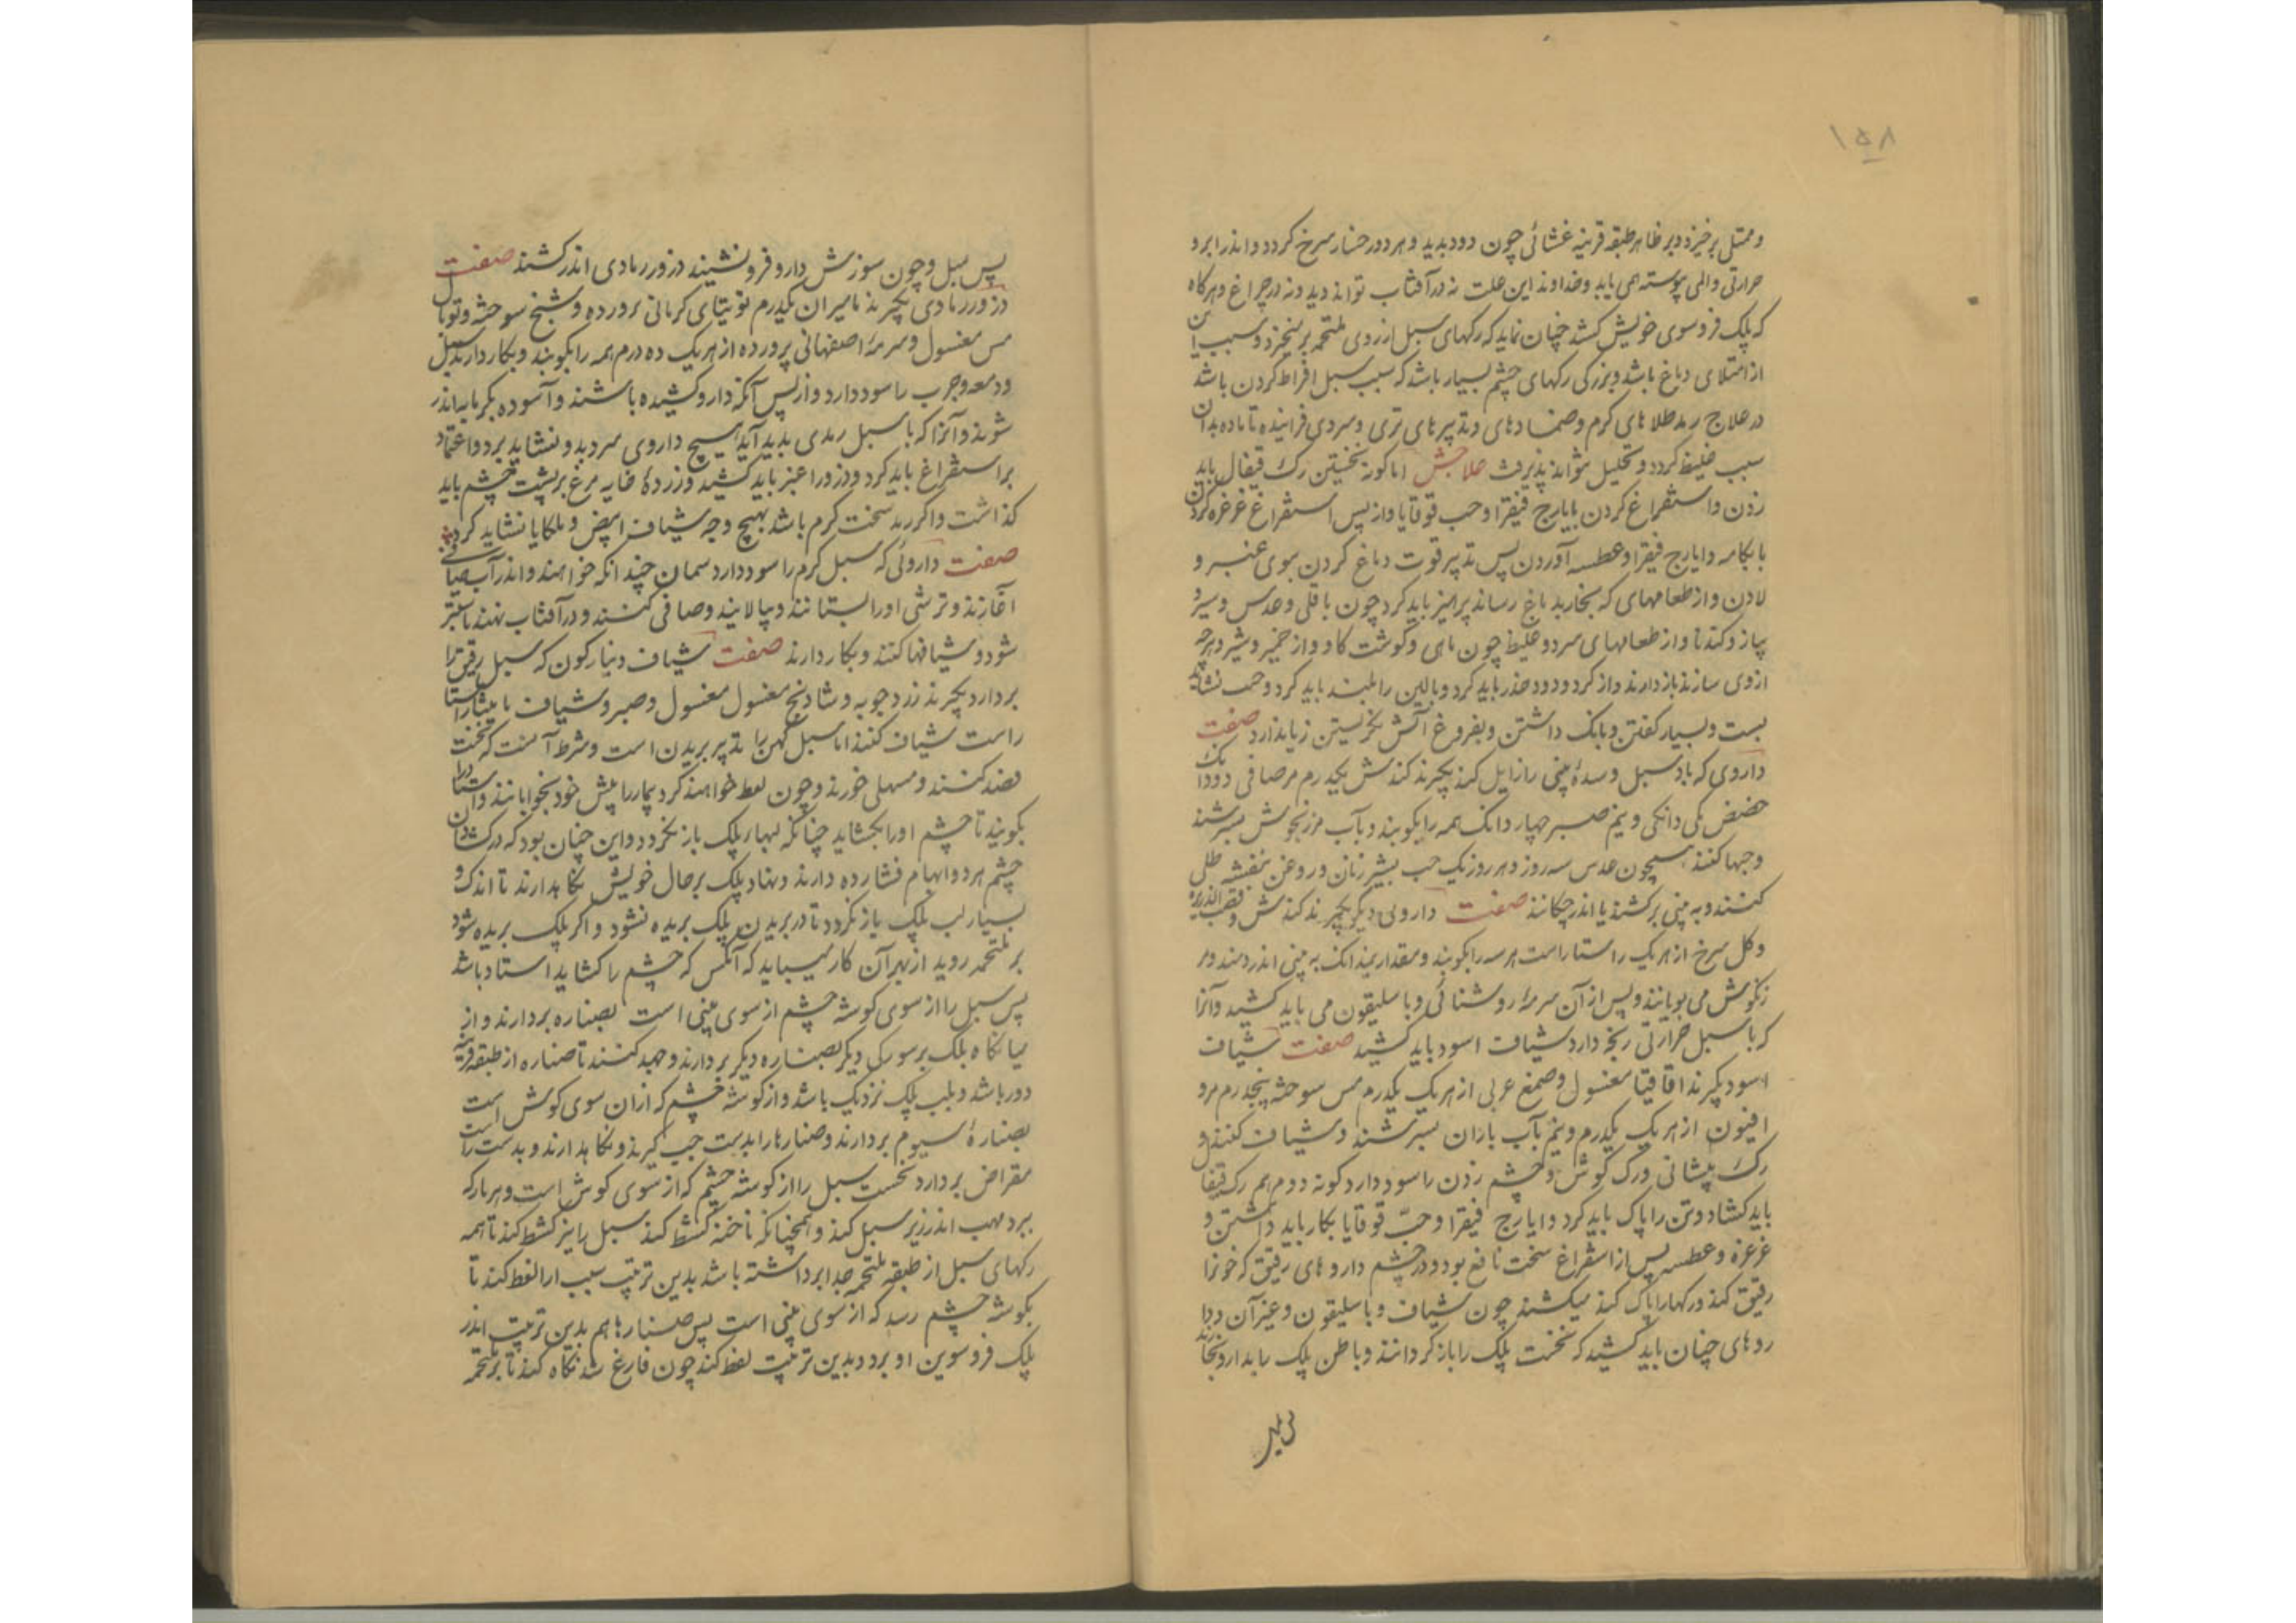 ۱۵۸
و ممتلی برخیزد و بر ظاهر طبقه قرینه غشائی چون دود بدید و هر دو رخسار سرخ کردد و اندر ابرو
حرارتی و المی پیوسته همی یابد و خداوند این علت نه در آفتاب تواند دید و نه در چراغ و هرکاه
که پلک فروسوی خویش کشد چنان نماید که رکهای سبل از روی ملتحمه برنخیزد و سبب این
از امتلای دماغ باشد و بزرکی رکهای چشم بسیار باشد که سبب سبل افراط کردن باشد
در علاج رمد طلاهای کرم و ضمادهای و تدبیرهای تری و سردی فزاینده تا ماده بدان
سبب غلیظ کردد و تحلیل نتواند پذیرفت علاجش اما کونه نخستین رک قیفال باید
زدن و استفراغ کردن بایارج فیقرا و حب قوقایا و از پس استفراغ غرغره کردن
بابکامه و ایارج فیقرا و عطسه آوردن پس تدبیر قوت دماغ کردن ببوی عنبر و
لادن و از طعامهای که بخار بدماغ رساند پرهیز باید کرد چون باقلی و عدس و سیر و
پیاز و کندنا و از طعامهای سرد و غلیظ چون ماهی و کوشت کاو و از خمیر و شیر و هرچه
ازوی سازند بازدارند و از کرد و دود حذر باید کرد و بالین را بلند باید کرد و حب نشاید
بست و بسیار کفتن و بانک داشتن و بفروغ آتش نکریستن زیاندارد صفت
داروی که باد سبل و سدهٔ بینی را زایل کند بکیرند کندش یکدرم مر صافی دو دانک
حضض یکی دانکی و نیم صبر چهار دانک همه را بکوبند و بآب مرزنجوش بسرشند
و حبها کنند همچون عدس سه روز و هر روز یک حب بشیر زنان و روغن بنفشه طلی
کنند و به بینی برکشند یا اندر چکانند صفت داروی دیکر بکیرند کندش و قصب الذریره
و کل سرخ از هر یک راستاراست هر سه را بکوبند و مقدار نیمدانک به بینی اندر دمند و مر
زنکوش می بویانند و پس از آن سرمهٔ روشنائی و باسلیقون می باید کشید و آنرا
که با سبل حرارتی رنجه دارد شیاف اسود باید کشید صفت شیاف
اسود بکیرند اقاقیا مغسول و صمغ عربی از هر یک یکدرم مس سوخته پنجدرم مر و
افیون از هر یک یکدرم و نیم بآب باران بسرشند و شیاف کنند و
رک پیشانی و رک کوش و چشم زدن را سود دارد کونه دوم هم رک قیفال
باید کشاد و تن را پاک باید کرد و ایارج فیقرا و حبّ قوقایا بکار باید داشتن و
غرغره و عطسه پس از استفراغ سخت نافع بود و در چشم داروهای رقیق که خونرا
رقیق کند و رکها را پاک کند میکشند چون شیاف و باسلیقون و غیر آن و دا
روهای چنان باید کشید که نخست پلک را باز کردانند و باطن پلک را بدارو بخارند
پس سبل و چون سوزش دارو فرو نشیند ذرور رمادی اندر کشند صفت
ذرور رمادی بکیرند مامیران یکدرم توتیای کرمانی پرورده و شنج سوخته و توبال
مس مغسول و سرمهٔ اصفهانی پرورده از هر یک ده درم همه را بکوبند و بکار دارند سبل
و دمعه و جرب را سود دارد و از پس آنکه دارو کشیده باشند و آسوده بکرمابه اندر
شوند و آنرا که با سبل رمدی بدید آید هیچ داروی سرد بدو نشاید برد و اعتماد
بر استفراغ باید کرد و ذرور اغبر باید کشید و زردهٔ خایه مرغ بر پشت چشم باید
کذاشت و اکر رمد سخت کرم باشد بهیچ وجه شیاف ابیض و ملکایا نشاید کرد
صفت داروئی که سبل کرم را سود دارد سماق چندانکه خواهند و اندر آب صافی
آغازند و ترشی او را بستانند و بپالایند و صافی کنند و در آفتاب نهند تا سطبر
شود و شیافها کنند و بکار دارند صفت شیاف دینارکون که سبل رقیق را
بردارد بکیرند زردچوبه و شادنج مغسول مغسول و صبر و شیاف مامیثا راستا
راست شیاف کنند اما سبل کهن را تدبیر بریدن است و شرط آنست که نخست
فصد کنند و مسهلی خورند و چون لقط خواهند کرد بیمار را پیش خود بخوابانند و استاد را
بکویند تا چشم او را بکشاید چنانکه لبهاء پلک باز نکردد و این چنان بود که در کشادن
چشم هر دو ابهام فشارده دارند و نهاد پلک بر حال خویش نکاهدارند تا اندک و
بسیار لب پلک باز نکردد تا در بریدن پلک بریده نشود و اکر پلک بریده شود
بر ملتحمه روید از بهر آن کار میباید که آنکس که چشم را کشاید استاد باشد
پس سبل را از سوی کوشه چشم از سوی بینی است بصناره بردارند و از
میانکاه پلک بر سوی دیکر بصناره دیکر بردارند و جهد کنند تا صناره از طبقه قرنیه
دور باشد و بلب پلک نزدیک باشد و از کوشه چشم که ازان سوی کوش است
بصنارهٔ سیوم بردارند و صنارها را بدست چپ کیرند و نکاهدارند و بدست راست
مقراض بردارد نخست سبل را از کوشه چشم که از سوی کوش است و هر بار که
ببرد مهت اندر زیر سبل کند و همچنانکه ناخنه کشط کند سبل را نیز کشط کند تا همه
رکهای سبل از طبقه ملتحمه جدا برداشته باشد بدین ترتیب سبب او را لقط کند تا
بکوشه چشم رسد که از سوی بینی است پس صنارها هم بدین ترتیب اندر
پلک فروسوین او برد و بدین ترتیب لقط کند چون فارغ شد نکاه کند تا بر ملتحمه